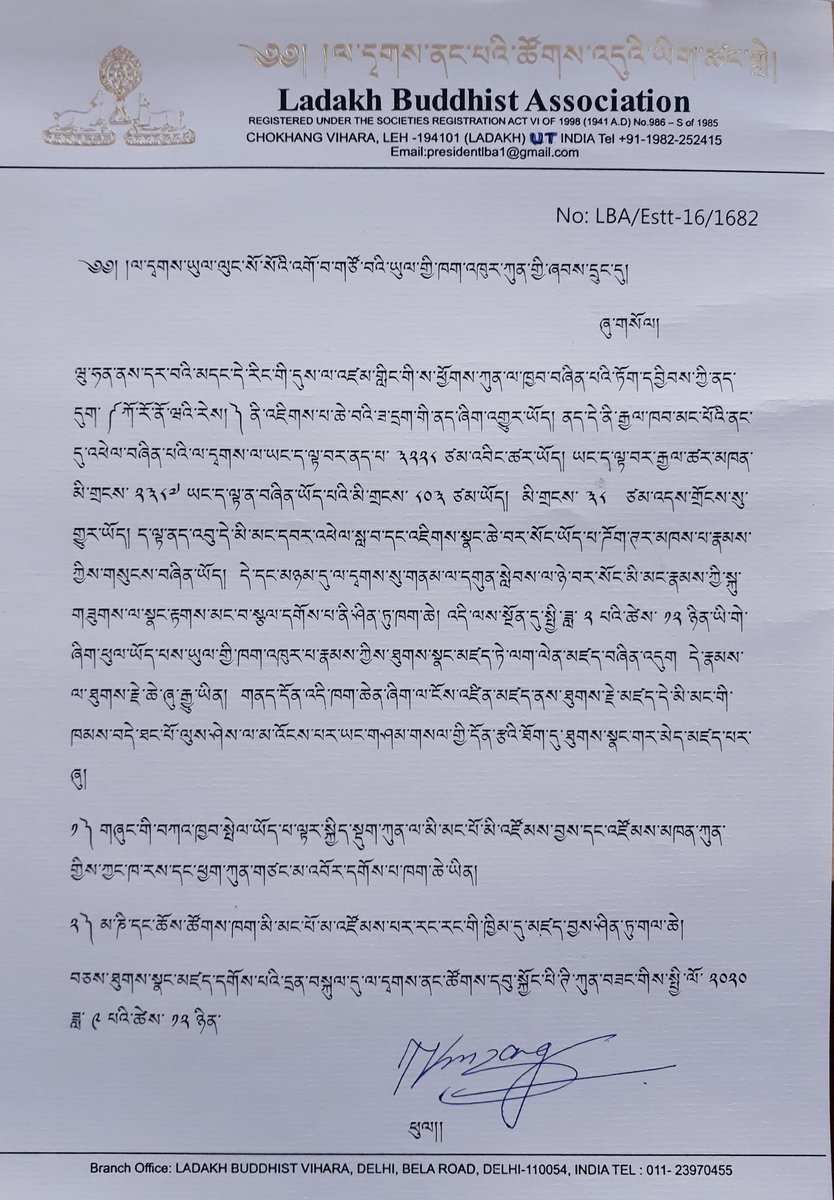 ༄༅། །ལ་དྭགས་ནང་པའི་ཚོགས་འདུའི་ཡིག་ཚང་གླེ།
Ladakh Buddhist Association
REGISTERED UNDER THE SOCIETIES REGISTRATION ACT VI OF 1998 (1941 A.D) No.986 – S of 1985
CHOKHANG VIHARA, LEH -194101 (LADAKH) UT INDIA Tel +91-1982-252415
Email:presidentlba1@gmail.com
No: LBA/Estt-16/1682
༄༅། །ལ་དྭགས་ཡུལ་ལུང་སོ་སོའི་འགོ་བ་གཙོ་བའི་ཡུལ་གྱི་ཁག་འཁུར་ཀུན་གྱི་ཞབས་དྲུང་དུ།
ཞུ་གསོལ།
ཝུ་ཧན་ནས་དར་བའི་མདང་དེ་རིང་གི་དུས་ལ་འཛམ་གླིང་གི་ས་ཕྱོགས་ཀུན་ལ་ཁྱབ་བཞིན་པའི་ཏོག་དབྱིབས་ཀྱི་ནད་
དུག་ ༼ ཀོ་རོ་ནོ་ཝའི་རེས། ༽ ནི་འཇིགས་པ་ཆེ་བའི་ཟ་དྲག་གི་ནད་ཞིག་འགྱུར་ཡོད། ནད་དེ་ནི་རྒྱལ་ཁབ་མང་པོའི་ནང་
དུ་འཕེལ་བཞིན་པའི་ལ་དྭགས་ལ་ཡང་ད་ལྟ་བར་ནད་པ་ ༣༢༢༨ ཙམ་འབིང་ཚར་ཡོད། ཡང་ད་ལྟ་བར་རྒྱལ་ཚར་མཁན་
མི་གྲངས་ ༢༣༨༧ ཡང་ད་ལྟ་ན་བཞིན་ཡོད་པའི་མི་གྲངས་ ༨༠༣ ཙམ་ཡོད། མི་གྲངས་ ༣༨ ཙམ་འདས་གྲོངས་སུ་
གྱུར་ཡོད། ད་ལྟ་ནད་འབུ་དེ་མི་མང་དབར་འཕེལ་སླ་བ་དང་འཇིགས་སྣང་ཆེ་བར་སོང་ཡོད་པ་ཌོག་ཊར་མཁས་པ་རྣམས་
ཀྱིས་གསུངས་བཞིན་ཡོད། དེ་དང་མཉམ་དུ་ལ་དྭགས་སུ་གནམ་ལ་དགུན་སླེབས་ལ་ཉེ་བར་སོང་མི་མང་རྣམས་ཀྱི་སྐུ་
གཟུགས་ལ་སྣང་རྟགས་མང་བ་སྩལ་དགོས་པ་ནི་ཤིན་ཏུ་ཁག་ཆེ། འདི་ལས་སྔོན་དུ་སྤྱི་ཟླ་ ༢ པའི་ཚེས་ ༡༢ ཉིན་ཡི་གེ་
ཞིག་ཕུལ་ཡོད་པས་ཡུལ་གྱི་ཁག་འཁུར་པ་རྣམས་ཀྱིས་ཐུགས་སྣང་མཛད་ཏེ་ལག་ལེན་མཛད་བཞིན་འདུག དེ་རྣམས་
ལ་ཐུགས་རྗེ་ཆེ་ཞུ་རྒྱུ་ཡིན། གནད་དོན་འདི་ཁག་ཆེན་ཞིག་ལ་ངོས་འཛིན་མཛད་ནས་ཐུགས་རྗེ་མཛད་དེ་མི་མང་གི་
ཁམས་བདེ་ཐང་པོ་ལུས་ཤེས་ལ་མ་འོངས་པར་ཡང་གཤམ་གསལ་གྱི་དོན་རྩའི་ཐོག་དུ་ཐུགས་སྣང་གར་མེད་མཛད་པར་
ཞུ།
༡༽ གཞུང་གི་བཀའ་ཁྱབ་སྤེལ་ཡོད་པ་ལྟར་སྐྱིད་སྡུག་ཀུན་ལ་མི་མང་པོ་མི་འཛོམས་བྱས་དང་འཛོམས་མཁན་ཀུན་
གྱིས་ཀྱང་ཁ་རས་དང་ཕྱག་ཀུན་གཙང་མ་འབོར་དགོས་པ་ཁག་ཆེ་ཡིན།
༢༽ མ་ཎི་དང་ཆོས་ཚོགས་ཁག་མི་མང་པོ་མ་འཛོམས་པར་རང་རང་གི་ཁྱིམ་དུ་མཛད་བྱས་ཤིན་ཏུ་གལ་ཆེ།
བཅས་ཐུགས་སྣང་མཛད་དགོས་པའི་དྲན་བསྐུལ་དུ་ལ་དྭགས་ནང་ཚོགས་དབུ་སྐྱོང་པི་ཊི་ཀུན་བཟང་གིས་སྤྱི་ལོ་ ༢༠༢༠
ཟླ་ ༩ པའི་ཚེས་ ༡༢ ཉིན་
ཕུལ།།
Branch Office: LADAKH BUDDHIST VIHARA, DELHI, BELA ROAD, DELHI-110054, INDIA TEL : 011- 23970455